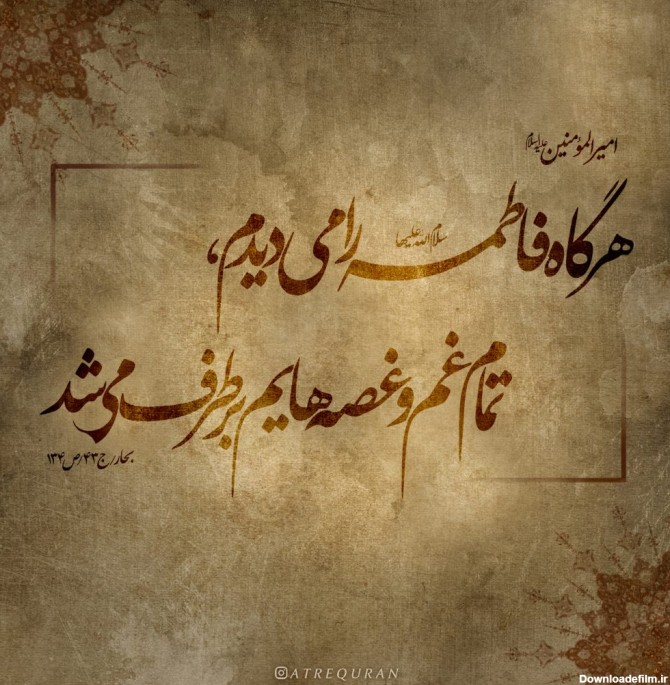 امیرالمؤمنین علیه‌السلام
هرگاه فاطمه سلام الله علیها را می دیدم،
تمام غم و غصه هایم برطرف می شد
بحار، ج۴۳، ص۱۳۴
@ATREQURAN
Downloadefilm.ir